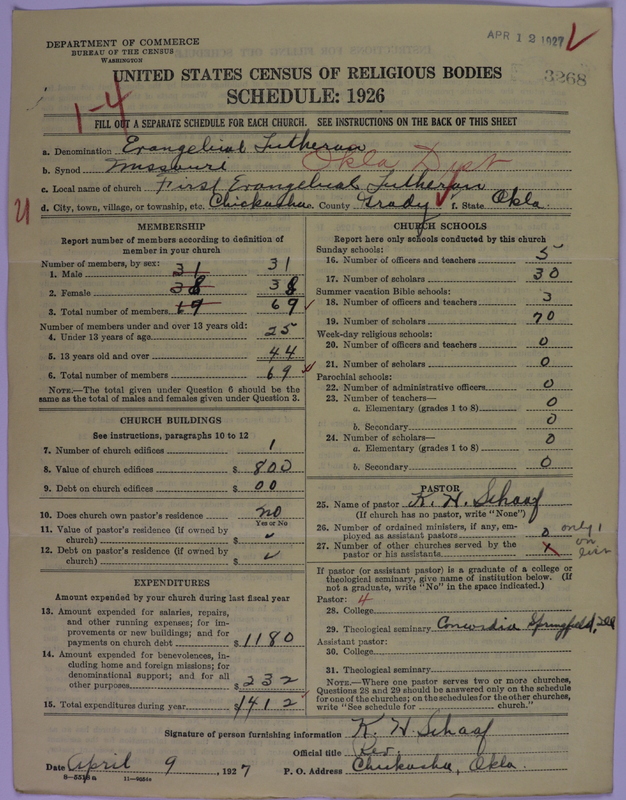 DEPARTMENT OF COMMERCE
BUREAU OF THE CENSUS
WASHINGTON
APR 12 1927
3268
UNITED STATES CENSUS OF RELIGIOUS BODIES
SCHEDULE: 1926
1-4
FILL OUT A SEPARATE SCHEDULE FOR EACH CHURCH. SEE INSTRUCTIONS ON THE BACK OF THIS SHEET
a. Denomination Evangelical Lutheran
b. Synod Missouri Okla Dist
c. Local name of church First Evangelical Lutheran
d. City, town, village, or township, etc. Chickasha e. County Grady f. State Okla.
MEMBERSHIP
Report number of members according to definition of member in your church
Number of members, by sex:
1. Male 31 31
2. Female 38 38
3. Total number of members 69 69
Number of members under and over 13 years old:
4. Under 13 years of age 25
5. 13 years old and over 44
6. Total number of members 69
NOTE.—The total given under Question 6 should be the same as the total of males and females given under Question 3.
CHURCH BUILDINGS
See instructions, paragraphs 10 to 12
7. Number of church edifices 1
8. Value of church edifices $ 800
9. Debt on church edifices $ 00
10. Does church own pastor's residence no
Yes or No
11. Value of pastor's residence (if owned by church) $ ✓
12. Debt on pastor's residence (if owned by church) $ ✓
EXPENDITURES
Amount expended by your church during last fiscal year
13. Amount expended for salaries, repairs, and other running expenses; for improvements or new buildings; and for payments on church debt $ 1180
14. Amount expended for benevolences, including home and foreign missions; for denominational support; and for all other purposes $ 232
15. Total expenditures during year $ 1412
CHURCH SCHOOLS
Report here only schools conducted by this church
Sunday schools:
16. Number of officers and teachers 5
17. Number of scholars 30
Summer vacation Bible schools:
18. Number of officers and teachers 3
19. Number of scholars 70
Week-day religious schools:
20. Number of officers and teachers 0
21. Number of scholars 0
Parochial schools:
22. Number of administrative officers 0
23. Number of teachers—
a. Elementary (grades 1 to 8) 0
b. Secondary 0
24. Number of scholars— 0
a. Elementary (grades 1 to 8) 0
b. Secondary 0
PASTOR
25. Name of pastor K. H. Schaaf
(If church has no pastor, write "None")
26. Number of ordained ministers, if any, employed as assistant pastors 0 only 1
27. Number of other churches served by the pastor or his assistants on
If pastor (or assistant pastor) is a graduate of a college or theological seminary, give name of institution below. (If not a graduate, write "No" in the space indicated.)
Pastor: 4
28. College
29. Theological seminary Concordia Springfield, Ill
Assistant pastor:
30. College
31. Theological seminary
NOTE.—Where one pastor serves two or more churches, Questions 28 and 29 should be answered only on the schedule for one of the churches; on the schedules for the other churches, write "See schedule for church."
Signature of person furnishing information K. H. Schaaf
Official title Rev.
Date April 9, 1927 P. O. Address Chickasha, Okla.